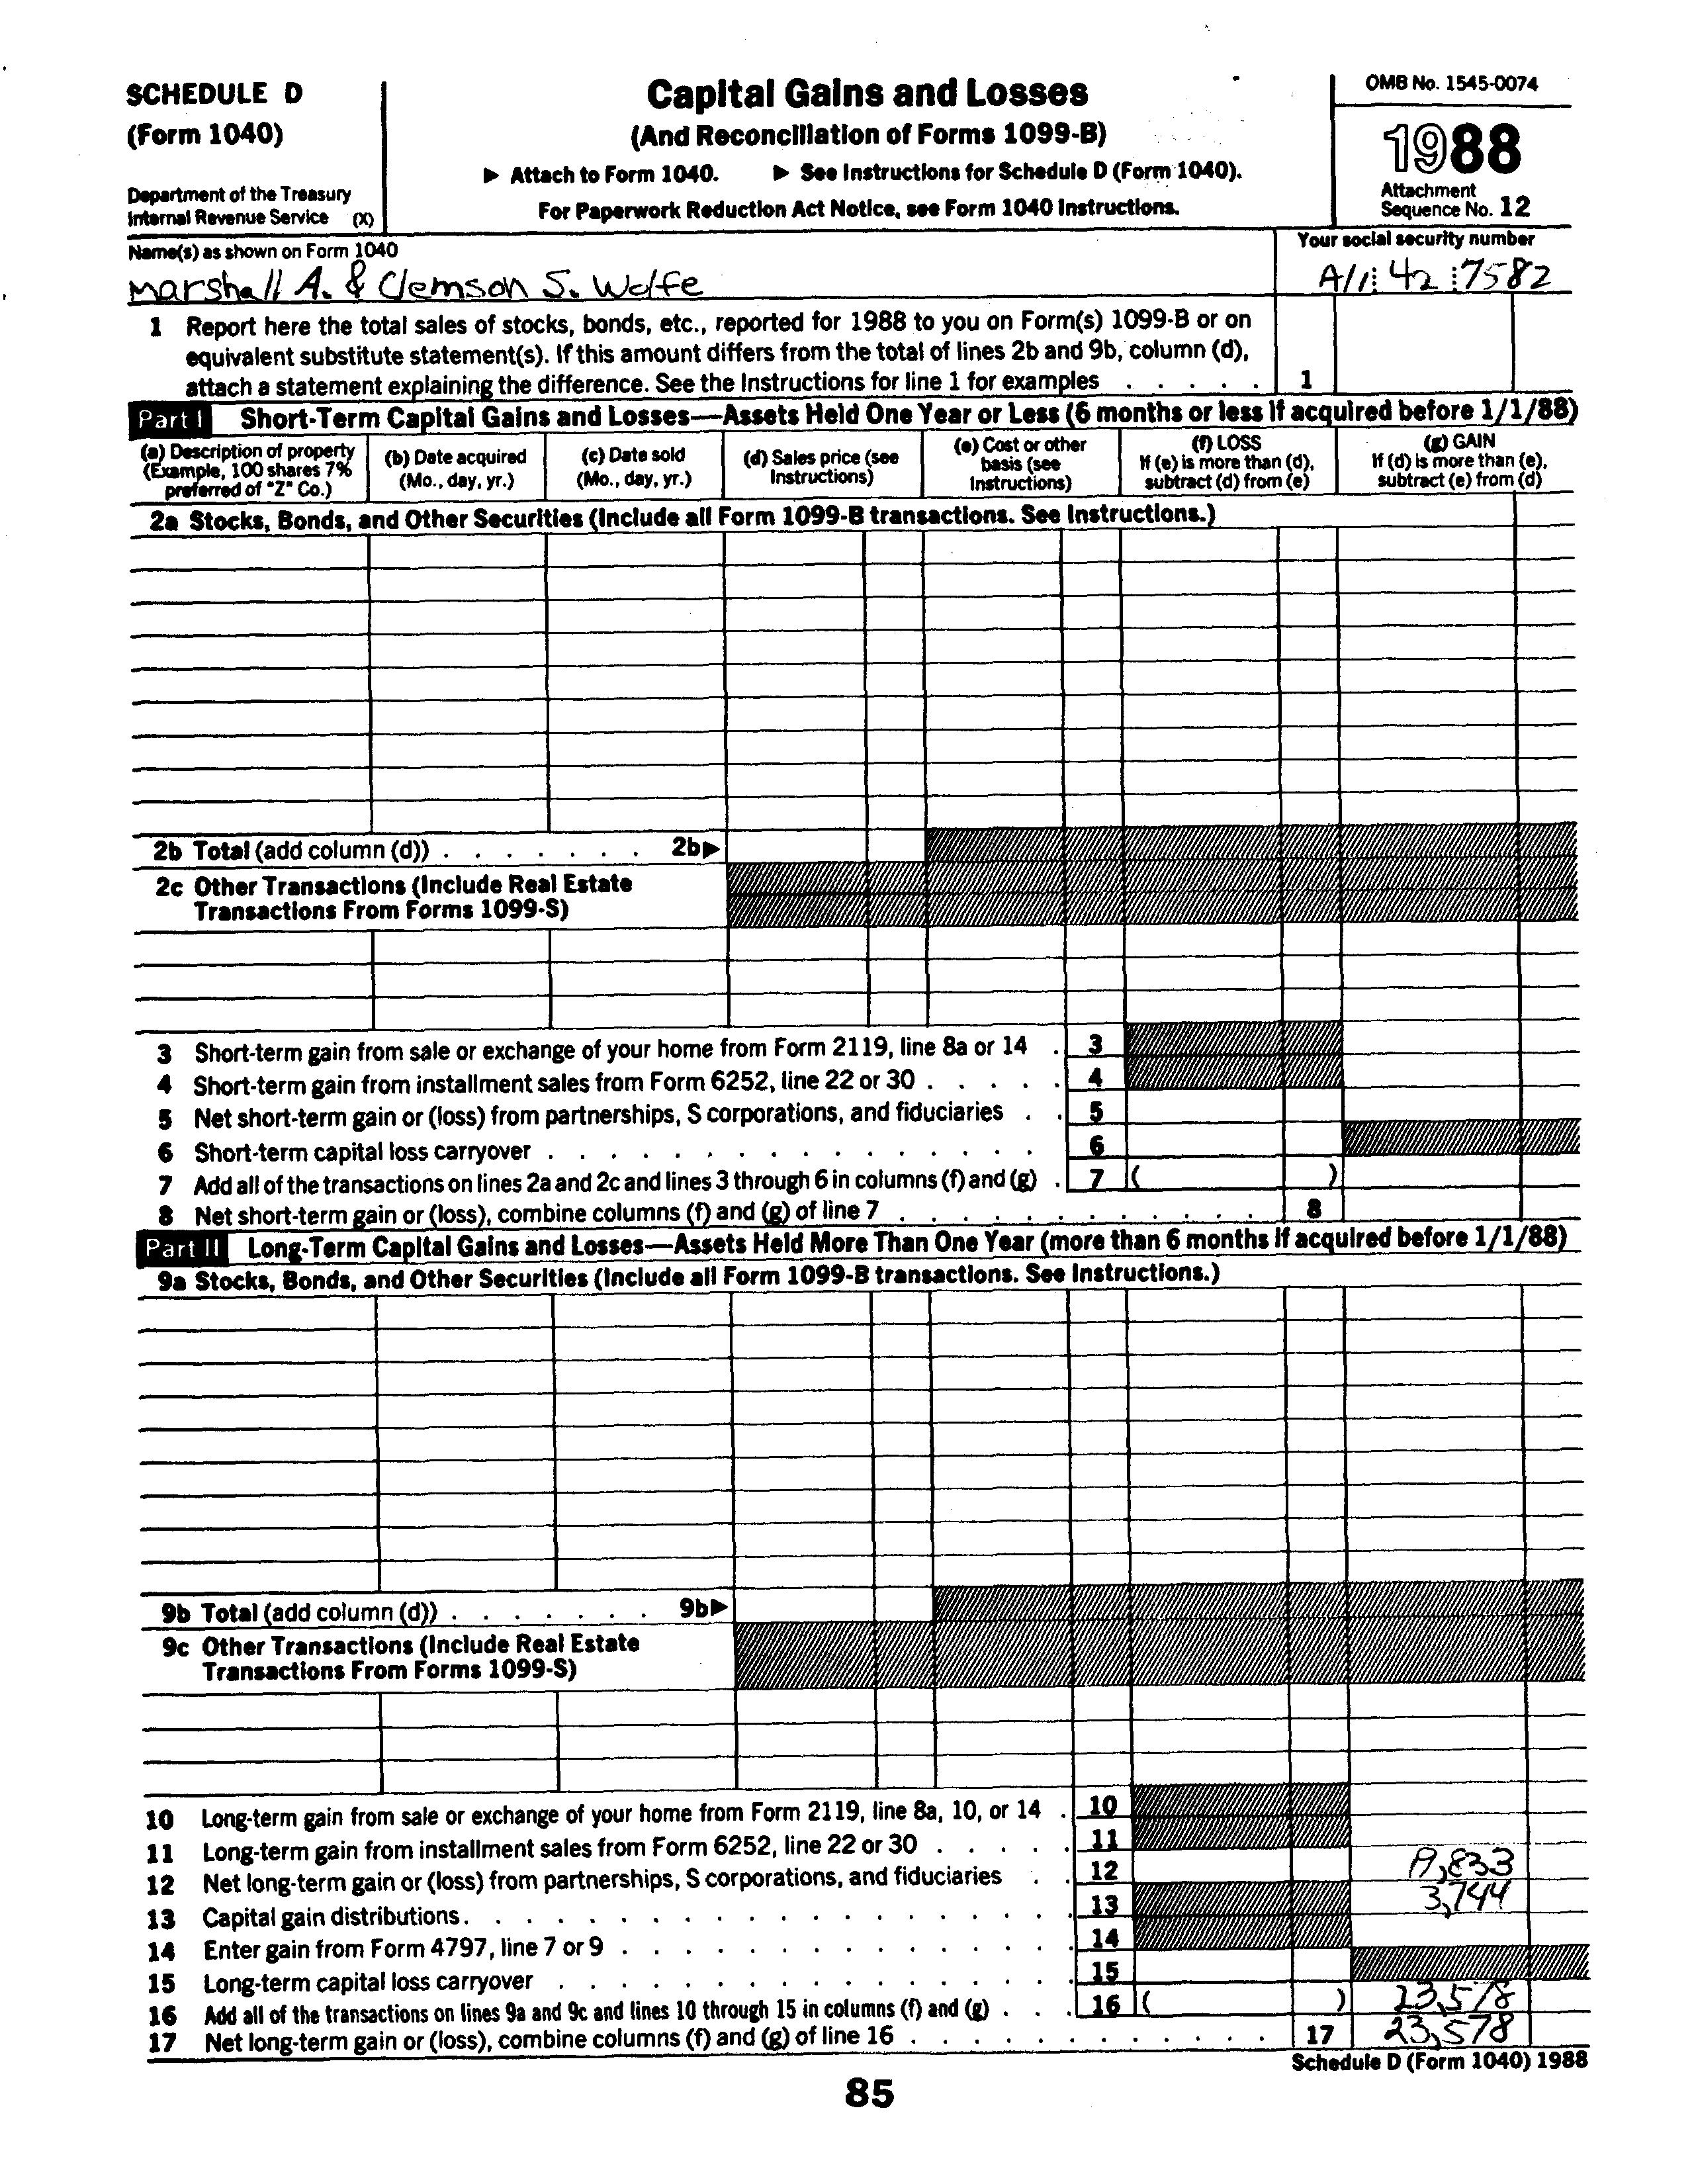 SCHEDULE D
(Form 1040)
Department of the Treasury
Internal Revenue Service (X)
Capital Gains and Losses
(And Reconciliation of Forms 1099-B)
▶ Attach to Form 1040. ▶ See Instructions for Schedule D (Form 1040).
For Paperwork Reduction Act Notice, see Form 1040 Instructions.
OMB No. 1545-0074
1988
Attachment
Sequence No. 12
Name(s) as shown on Form 1040
Marshall A. & Clemson S. Wolfe
Your social security number
A11 42 7582
1 Report here the total sales of stocks, bonds, etc., reported for 1988 to you on Form(s) 1099-B or on
equivalent substitute statement(s). If this amount differs from the total of lines 2b and 9b, column (d),
attach a statement explaining the difference. See the Instructions for line 1 for examples . . . . . 1
Part I Short-Term Capital Gains and Losses—Assets Held One Year or Less (6 months or less if acquired before 1/1/88)
(a) Description of property
(Example, 100 shares 7%
preferred of "Z" Co.)
(b) Date acquired
(Mo., day, yr.)
(c) Date sold
(Mo., day, yr.)
(d) Sales price (see
Instructions)
(e) Cost or other
basis (see
Instructions)
(f) LOSS
If (e) is more than (d),
subtract (d) from (e)
(g) GAIN
If (d) is more than (e),
subtract (e) from (d)
2a Stocks, Bonds, and Other Securities (Include all Form 1099-B transactions. See Instructions.)
2b Total (add column (d)) . . . . . . . 2b▶
2c Other Transactions (Include Real Estate
Transactions From Forms 1099-S)
3 Short-term gain from sale or exchange of your home from Form 2119, line 8a or 14 . 3
4 Short-term gain from installment sales from Form 6252, line 22 or 30 . . . . . 4
5 Net short-term gain or (loss) from partnerships, S corporations, and fiduciaries . . 5
6 Short-term capital loss carryover . . . . . . . . . . . . . . . 6
7 Add all of the transactions on lines 2a and 2c and lines 3 through 6 in columns (f) and (g) . 7 ( )
8 Net short-term gain or (loss), combine columns (f) and (g) of line 7 . . . . . . . . . . . . 8
Part II Long-Term Capital Gains and Losses—Assets Held More Than One Year (more than 6 months if acquired before 1/1/88)
9a Stocks, Bonds, and Other Securities (Include all Form 1099-B transactions. See Instructions.)
9b Total (add column (d)) . . . . . . . 9b▶
9c Other Transactions (Include Real Estate
Transactions From Forms 1099-S)
10 Long-term gain from sale or exchange of your home from Form 2119, line 8a, 10, or 14 . 10
11 Long-term gain from installment sales from Form 6252, line 22 or 30 . . . . . 11
12 Net long-term gain or (loss) from partnerships, S corporations, and fiduciaries . . 12
13 Capital gain distributions . . . . . . . . . . . . . . . . . . 13 3,744
14 Enter gain from Form 4797, line 7 or 9 . . . . . . . . . . . . . 14
15 Long-term capital loss carryover . . . . . . . . . . . . . . . 15
16 Add all of the transactions on lines 9a and 9c and lines 10 through 15 in columns (f) and (g) . . . 16 ( ) 23,578
17 Net long-term gain or (loss), combine columns (f) and (g) of line 16 . . . . . . . . . . . . 17 23,578
Schedule D (Form 1040) 1988
85